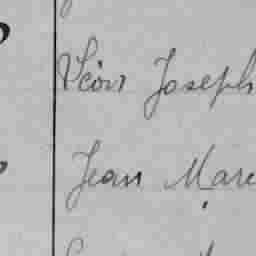 Léon Joseph
Jean Marc